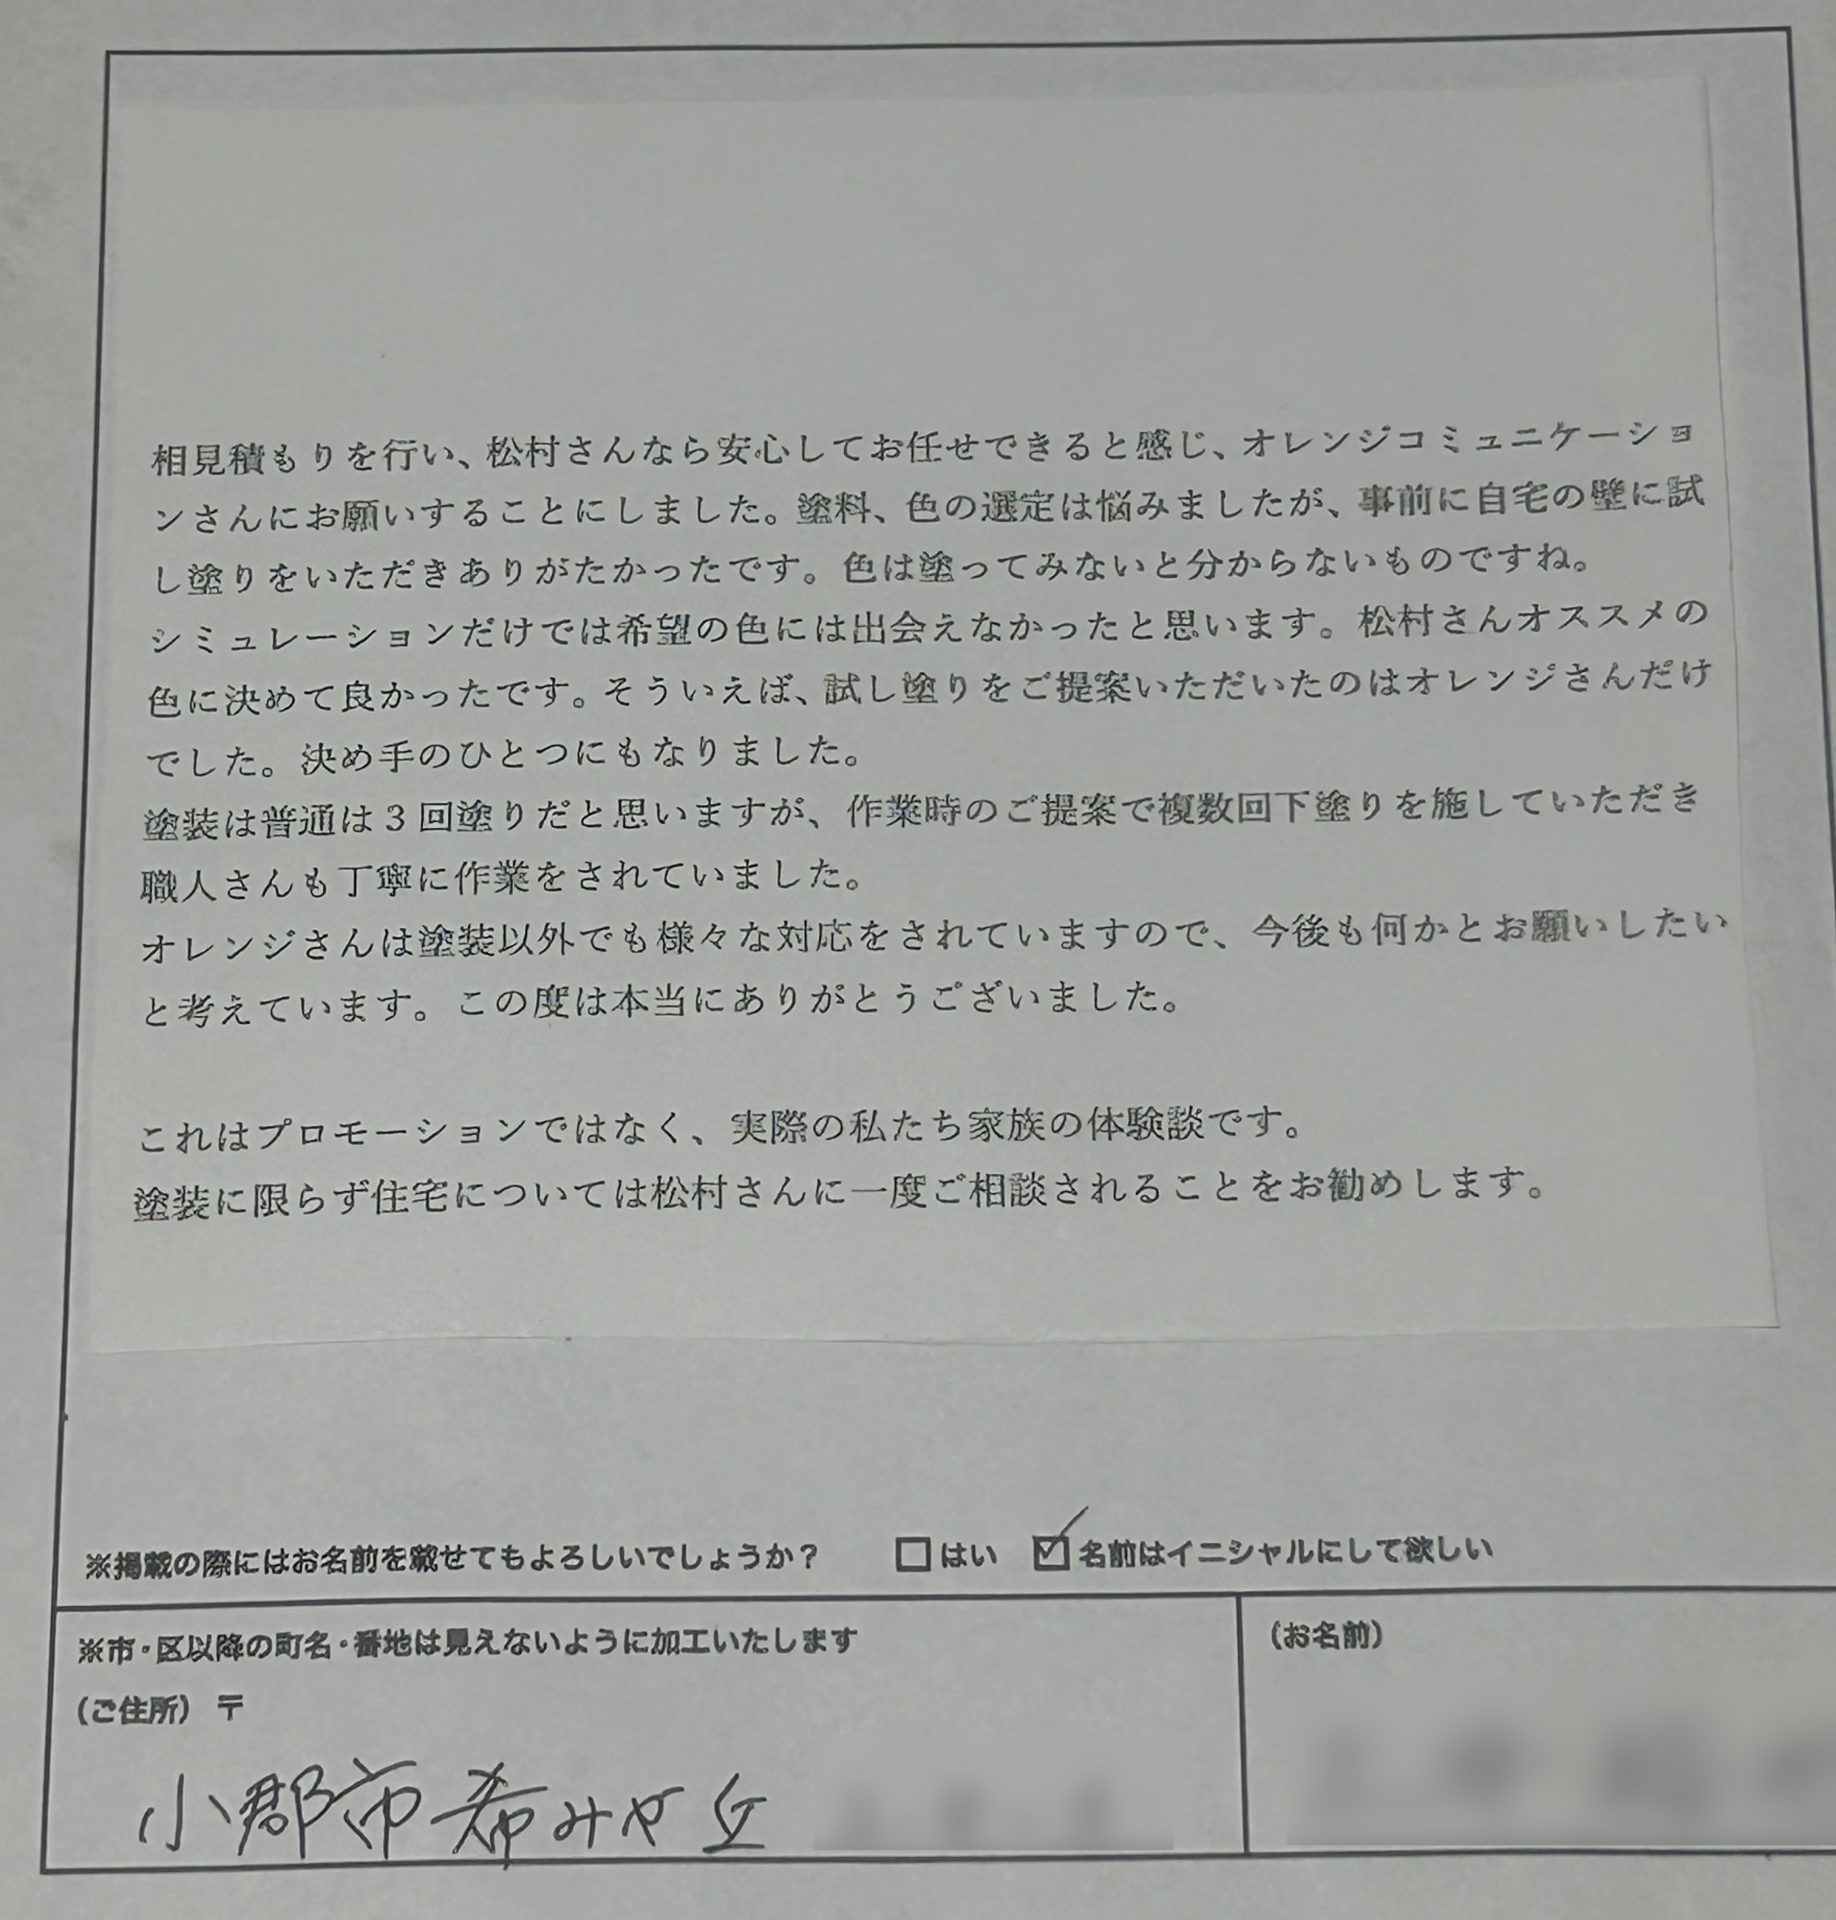 相見積もりを行い、松村さんなら安心してお任せできると感じ、オレンジコミュニケーショ
ンさんにお願いすることにしました。塗料、色の選定は悩みましたが、事前に自宅の壁に試
し塗りをいただきありがたかったです。色は塗ってみないと分からないものですね。
シミュレーションだけでは希望の色には出会えなかったと思います。松村さんオススメの
色に決めて良かったです。そういえば、試し塗りをご提案いただいたのはオレンジさんだけ
でした。決め手のひとつにもなりました。
塗装は普通は3回塗りだと思いますが、作業時のご提案で複数回下塗りを施していただき
職人さんも丁寧に作業をされていました。
オレンジさんは塗装以外でも様々な対応をされていますので、今後も何かとお願いしたい
と考えています。この度は本当にありがとうございました。
これはプロモーションではなく、実際の私たち家族の体験談です。
塗装に限らず住宅については松村さんに一度ご相談されることをお勧めします。
※掲載の際にはお名前を載せてもよろしいでしょうか？ □はい ☑名前はイニシャルにして欲しい
※市・区以降の町名・番地は見えないように加工いたします
（お名前）
（ご住所）〒
小郡市希みが丘